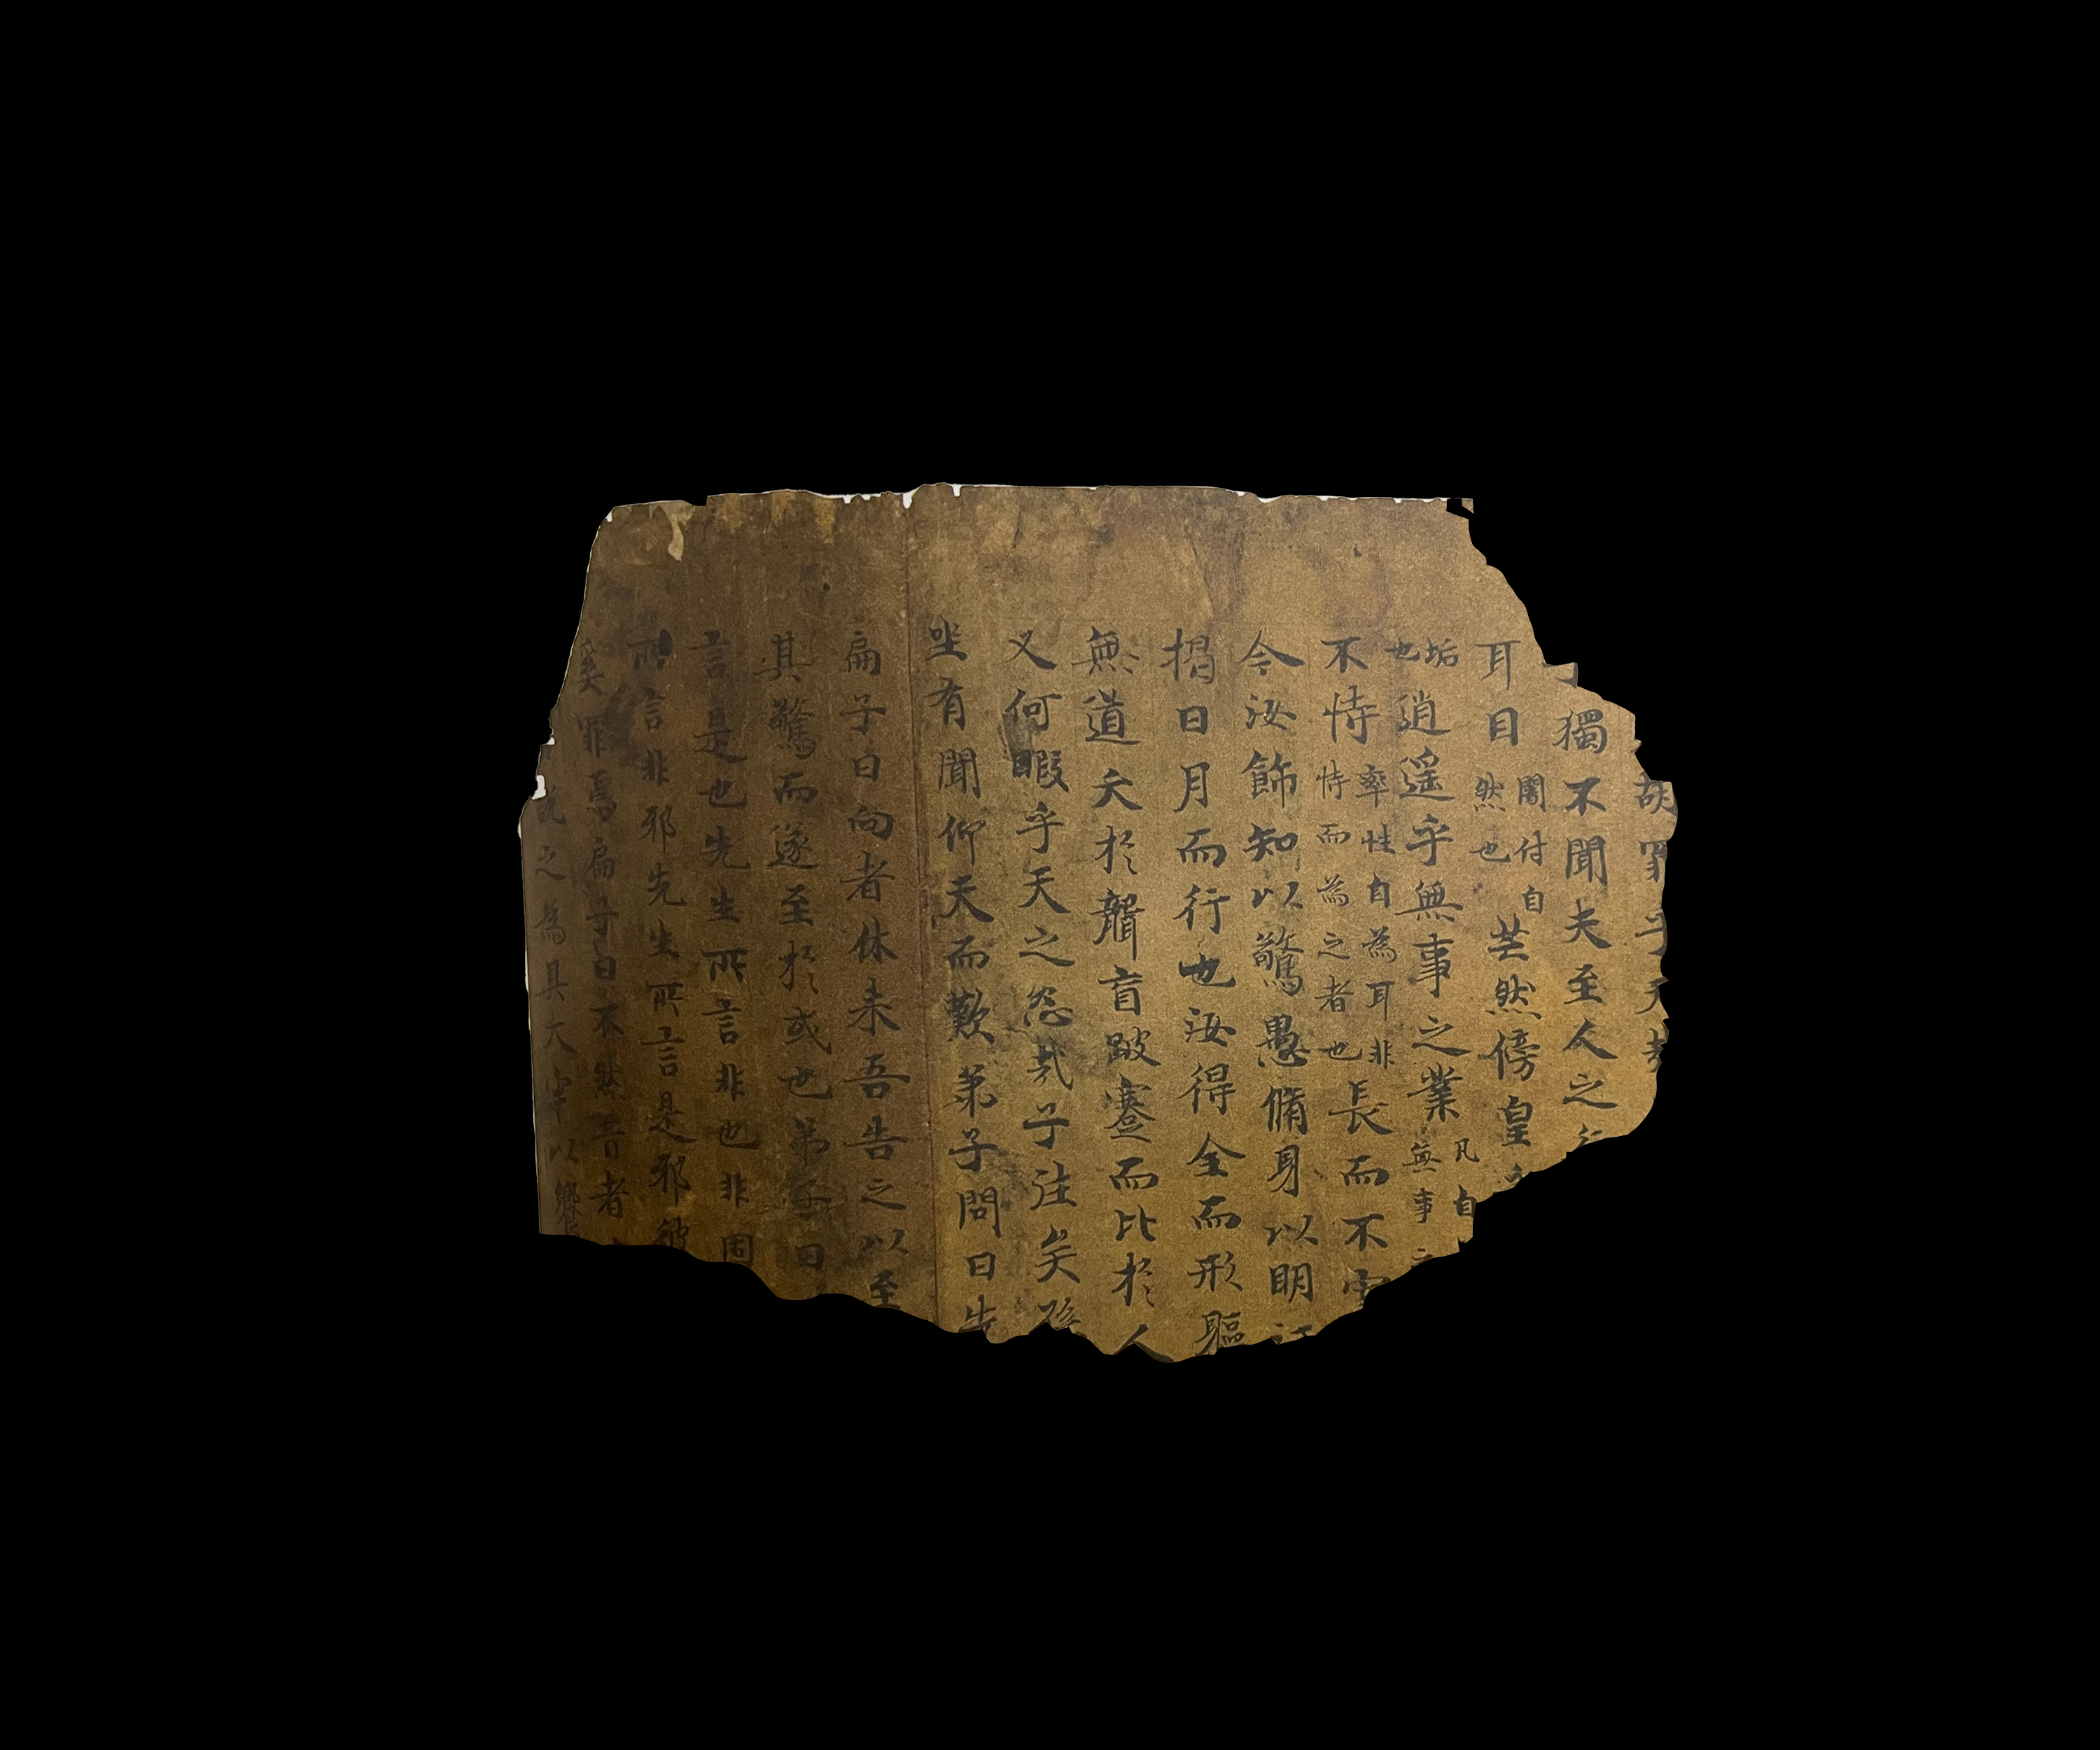 胡罪乎天
獨不聞夫至人之
耳目闇付自然也芒然傍皇
垢也逍遥乎無事之業凡自無事
不恃率性自為耳非恃而為之者也長而不宰
令汝飾知以驚愚脩身以明
揭日月而行也汝得全而形軀
無道夭於聾盲跛蹇而比於人
又何暇乎天之怨哉子往矣孫
坐有聞仰天而歎弟子問曰先
扁子曰向者休来吾告之以至
其驚而遂至於或也弟子曰
言是也先生所言非也非固
所言非邪先生所言是邪彼
奚罪焉扁子曰不然昔者
之為具大牢以饗